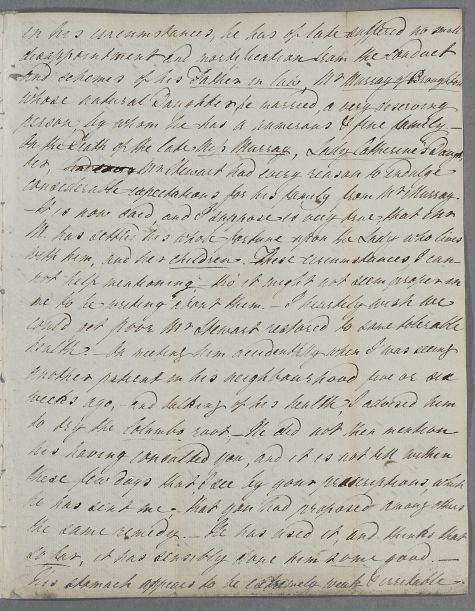 in his circumstances, he has of late suffered no small
disappointment and mortification from the conduct
and schemes of his Father in law, Mr Murray of Broughton
whose natural Daughter he married, a very deserving
person by whom he has a numerous & fine family —
On the Death of the late Mrs Murray, Lady Catherine's Daugh
ter, Mr Stewart had every reason to indulge
considerable expectations for his family from Mr Murray.
It is now said, and I suppose is very true, that Mr
M. has settled his whole fortune upon the Lady who lives
with him, and her children. These circumstances, I can
not help mentioning tho' it might not seem proper in
me to be writing about them. — I heartily wish we
could get poor Mr Stewart restored to some tolerable
health — On meeting him accidentally when I was seeing
another patient in his neighbourhood five or six
weeks ago, — and talking of his health, I advised him
to try the Columbo root. — He did not then mention
his having consulted you, and it is not till within
these few days that I see by your prescriptions, which
he has sent me, that you had proposed among others
the same remedy — He has used it and thinks that
so far, it has sensibly done him some good —
His stomach appears to be extremely weak & irritable —